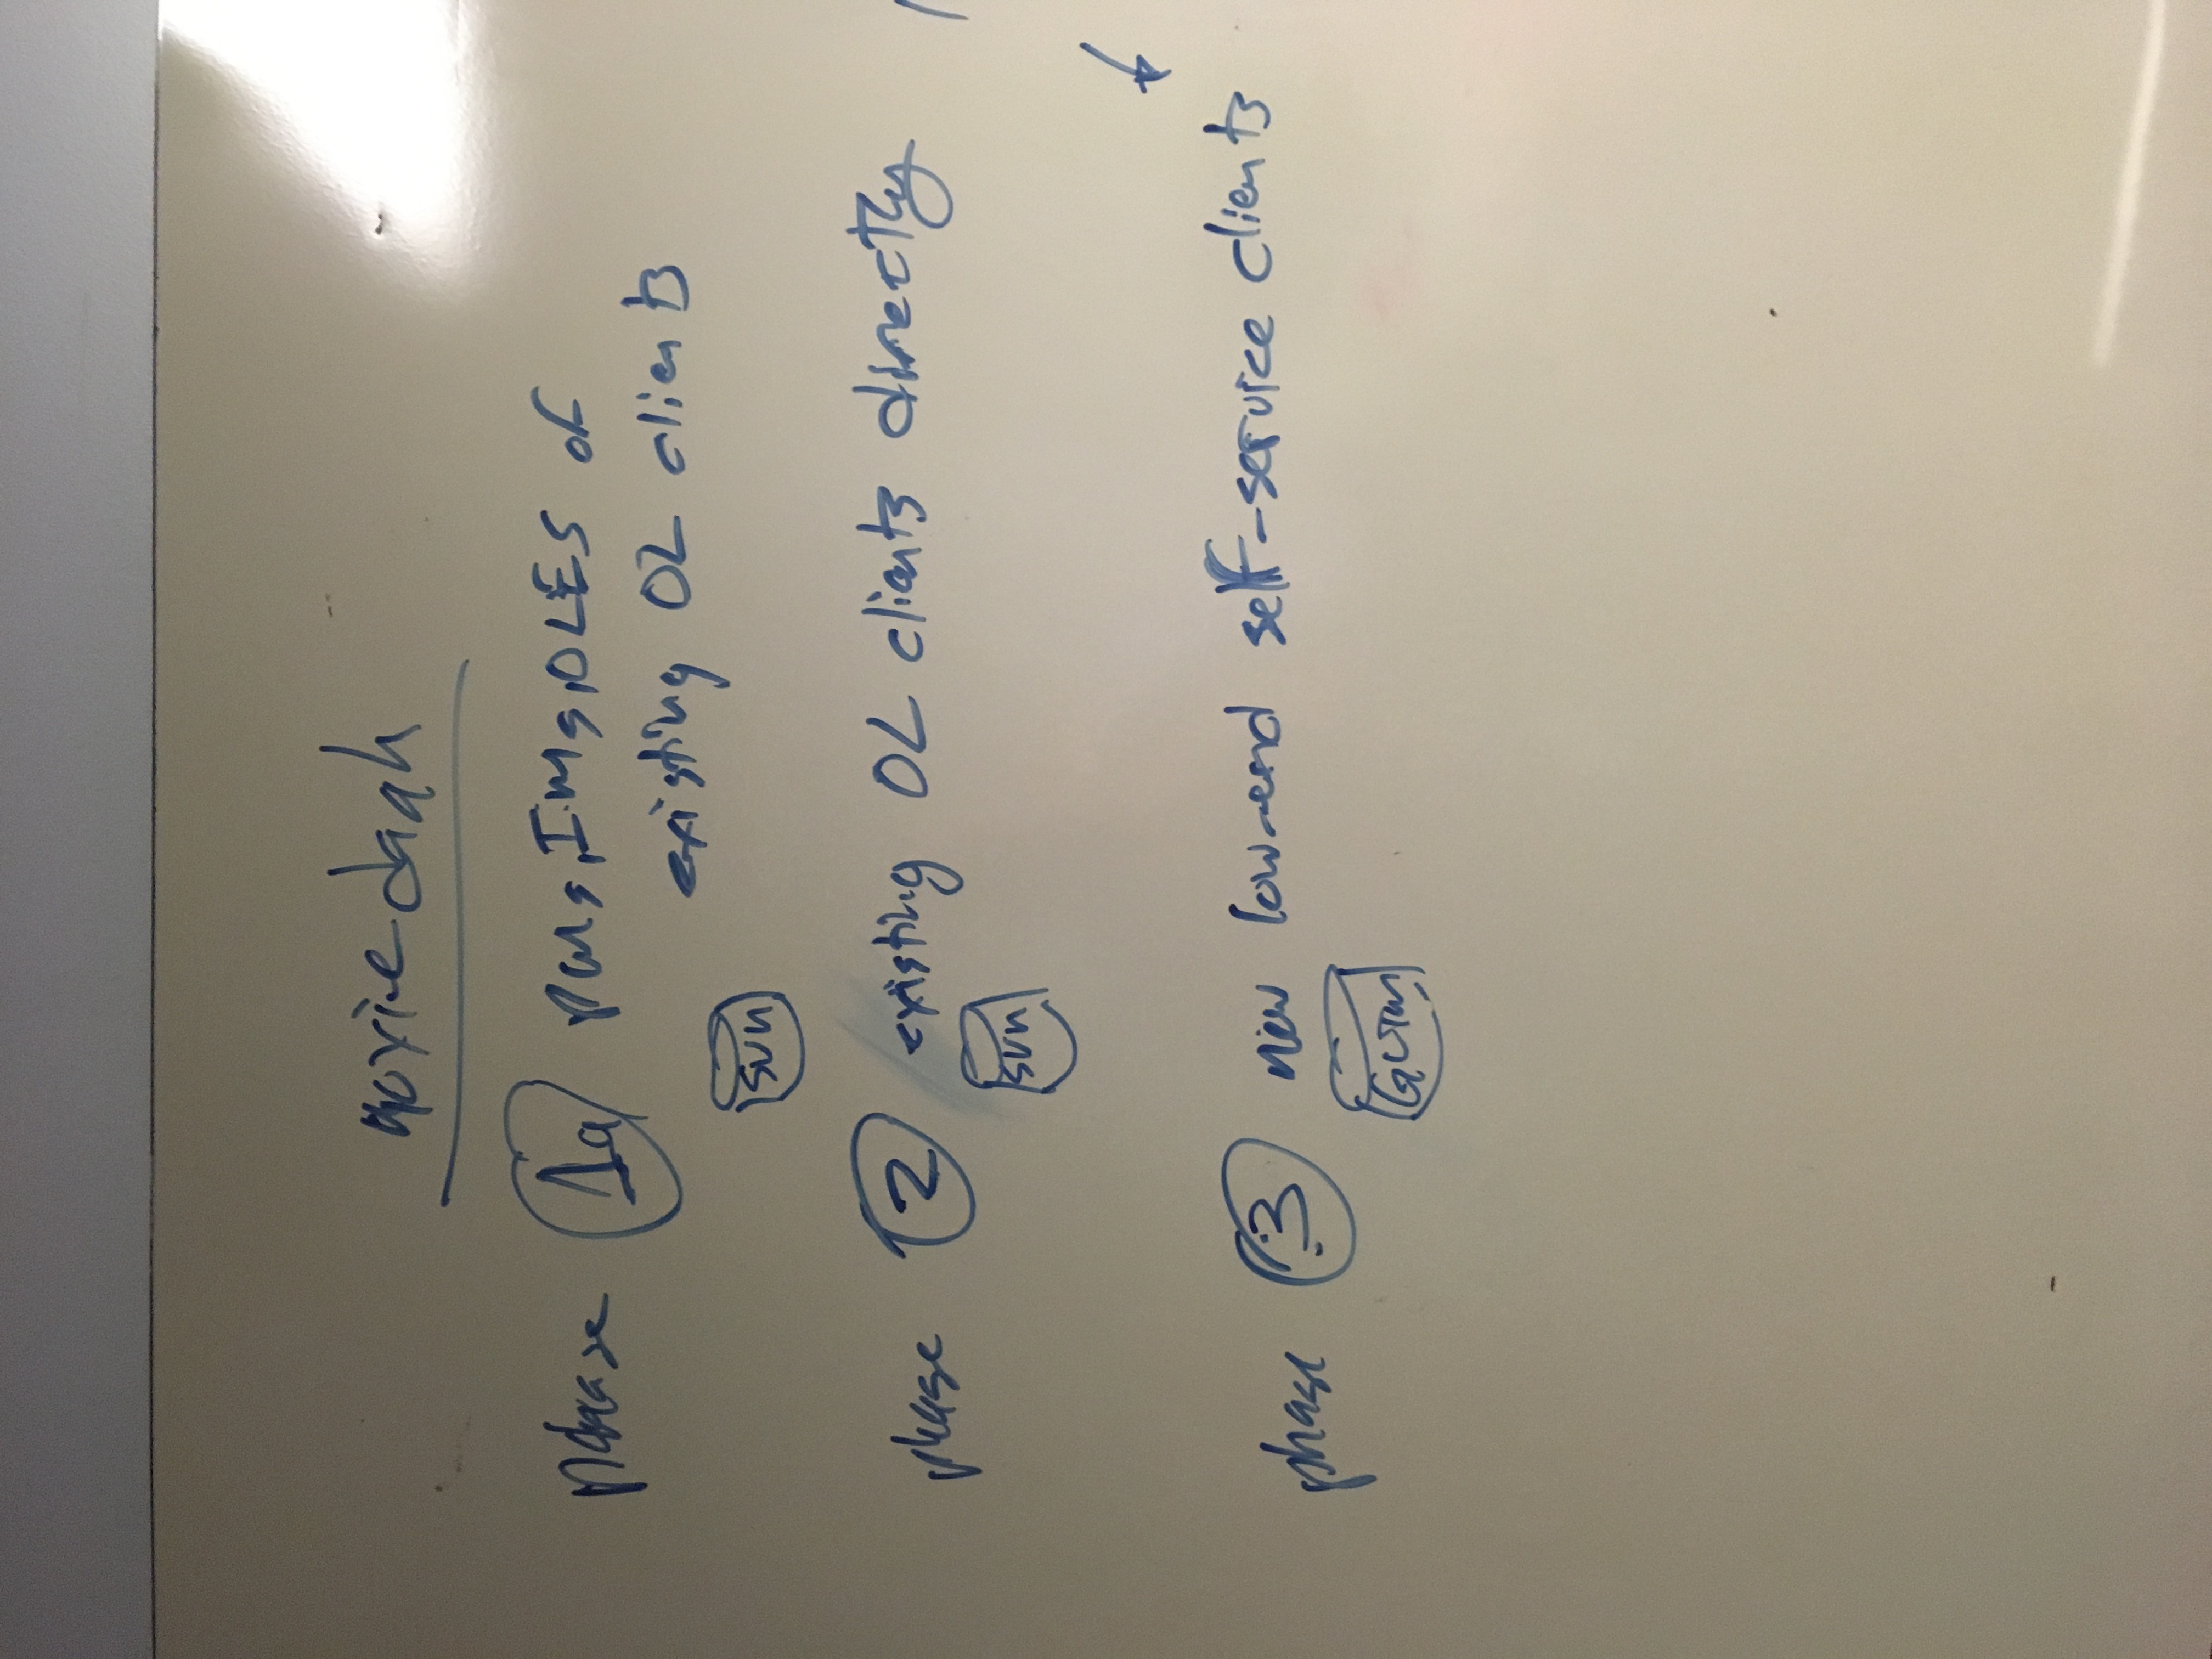 moxiedash
phase 1a PMs, IMs, OLES of
existing OL clients
SVM
phase 2 existing OL clients directly
SVM
phase 3 new low-end self-service clients